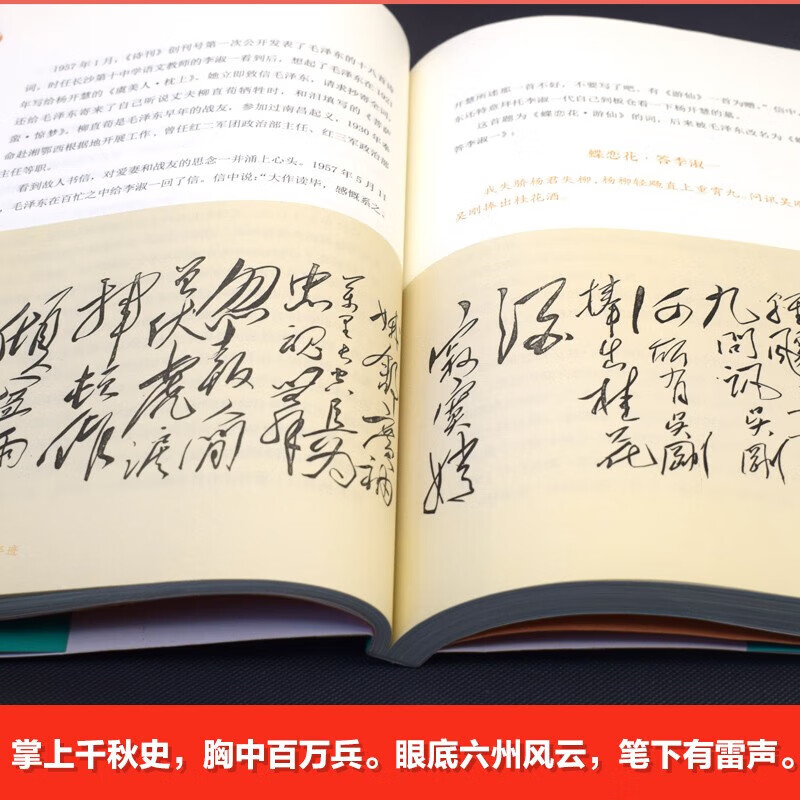 1957年1月，《诗刊》创刊号第一次公开发表了毛泽东的十八首诗
词，时任长沙第十中学语文教师的李淑一看到后，想起了毛泽东在1921
年写给杨开慧的《虞美人·枕上》。她立即致信毛泽东，请求抄寄全词，
还给毛泽东寄来了自己听说丈夫柳直荀牺牲时，和泪填写的《菩萨
蛮·惊梦》。柳直荀是毛泽东早年的战友，参加过南昌起义，1930年奉
命赴湘鄂西根据地开展工作，曾任红二军团政治部主任、红三军政治部
主任等职。
看到故人书信，对爱妻和战友的思念一并涌上心头。1957年5月11
日，毛泽东在百忙之中给李淑一回了信。信中说：“大作读毕，感慨系之。
开慧所述那一首不好，不要写了吧，有《游仙》一首为赠。”信中，
东还特意拜托李淑一代自己到板仓看一下杨开慧的墓。
这首题为《蝶恋花·游仙》的词，后来被毛泽东改名为《蝶
答李淑一》：
蝶恋花·答李淑一
我失骄杨君失柳，杨柳轻飏直上重霄九。问讯吴刚
吴刚捧出桂花酒。
九问讯吴刚
何所有吴刚
捧出桂花
酒
寂寞嫦
娥舒广袖
万里长空且为
忠魂舞
忽报人间
曾伏虎泪
飞顿作
倾盆雨
掌上千秋史，胸中百万兵。眼底六州风云，笔下有雷声。